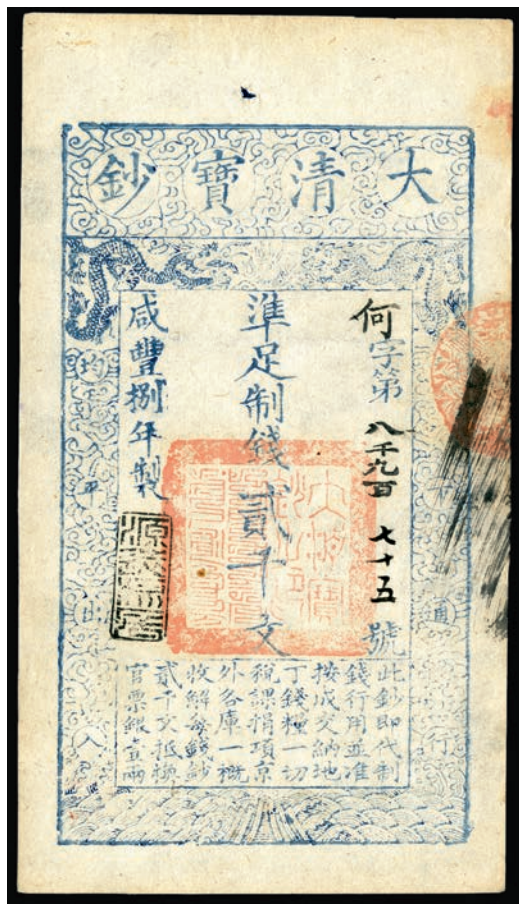 大清寶鈔
何字第八千九百七十五號
準足制錢貳千文
咸豐捌年製
下通行
均平出入
此鈔即代制
錢行用並准
按成交納地
丁錢糧一切
稅課捐項京
外各庫一概
收解每錢鈔
貳千文抵換
官票銀壹兩